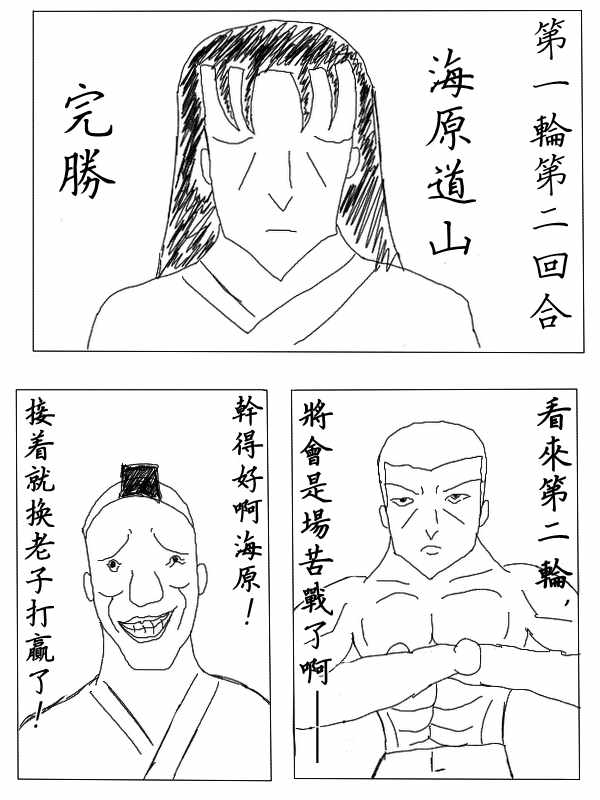 第一輪第二回合
海原道山
完勝
看來第二輪，
將會是場苦戰了啊——
幹得好啊海原！
接着就换老子打贏了！